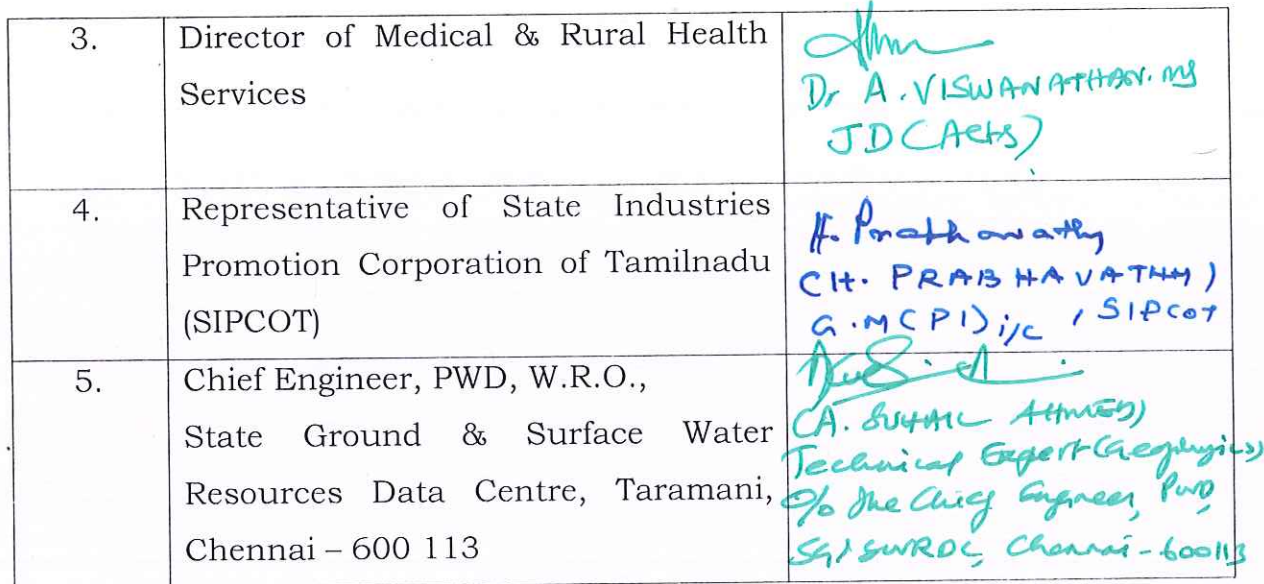 3.
Director of Medical & Rural Health
Services
Dr A. VISWANATHAN. MS
JD (Acts)
4.
Representative of State Industries
Promotion Corporation of Tamilnadu
(SIPCOT)
H. Prabhavathy
(H. PRABHAVATHY)
G.M(PI) i/c, SIPCOT
5.
Chief Engineer, PWD, W.R.O.,
State Ground & Surface Water
Resources Data Centre, Taramani,
Chennai – 600 113
(A. SUHAIL AHMED)
Technical Expert (Geophysics)
O/o the Chief Engineer, PWD,
SG&SWRDC, Chennai - 600113